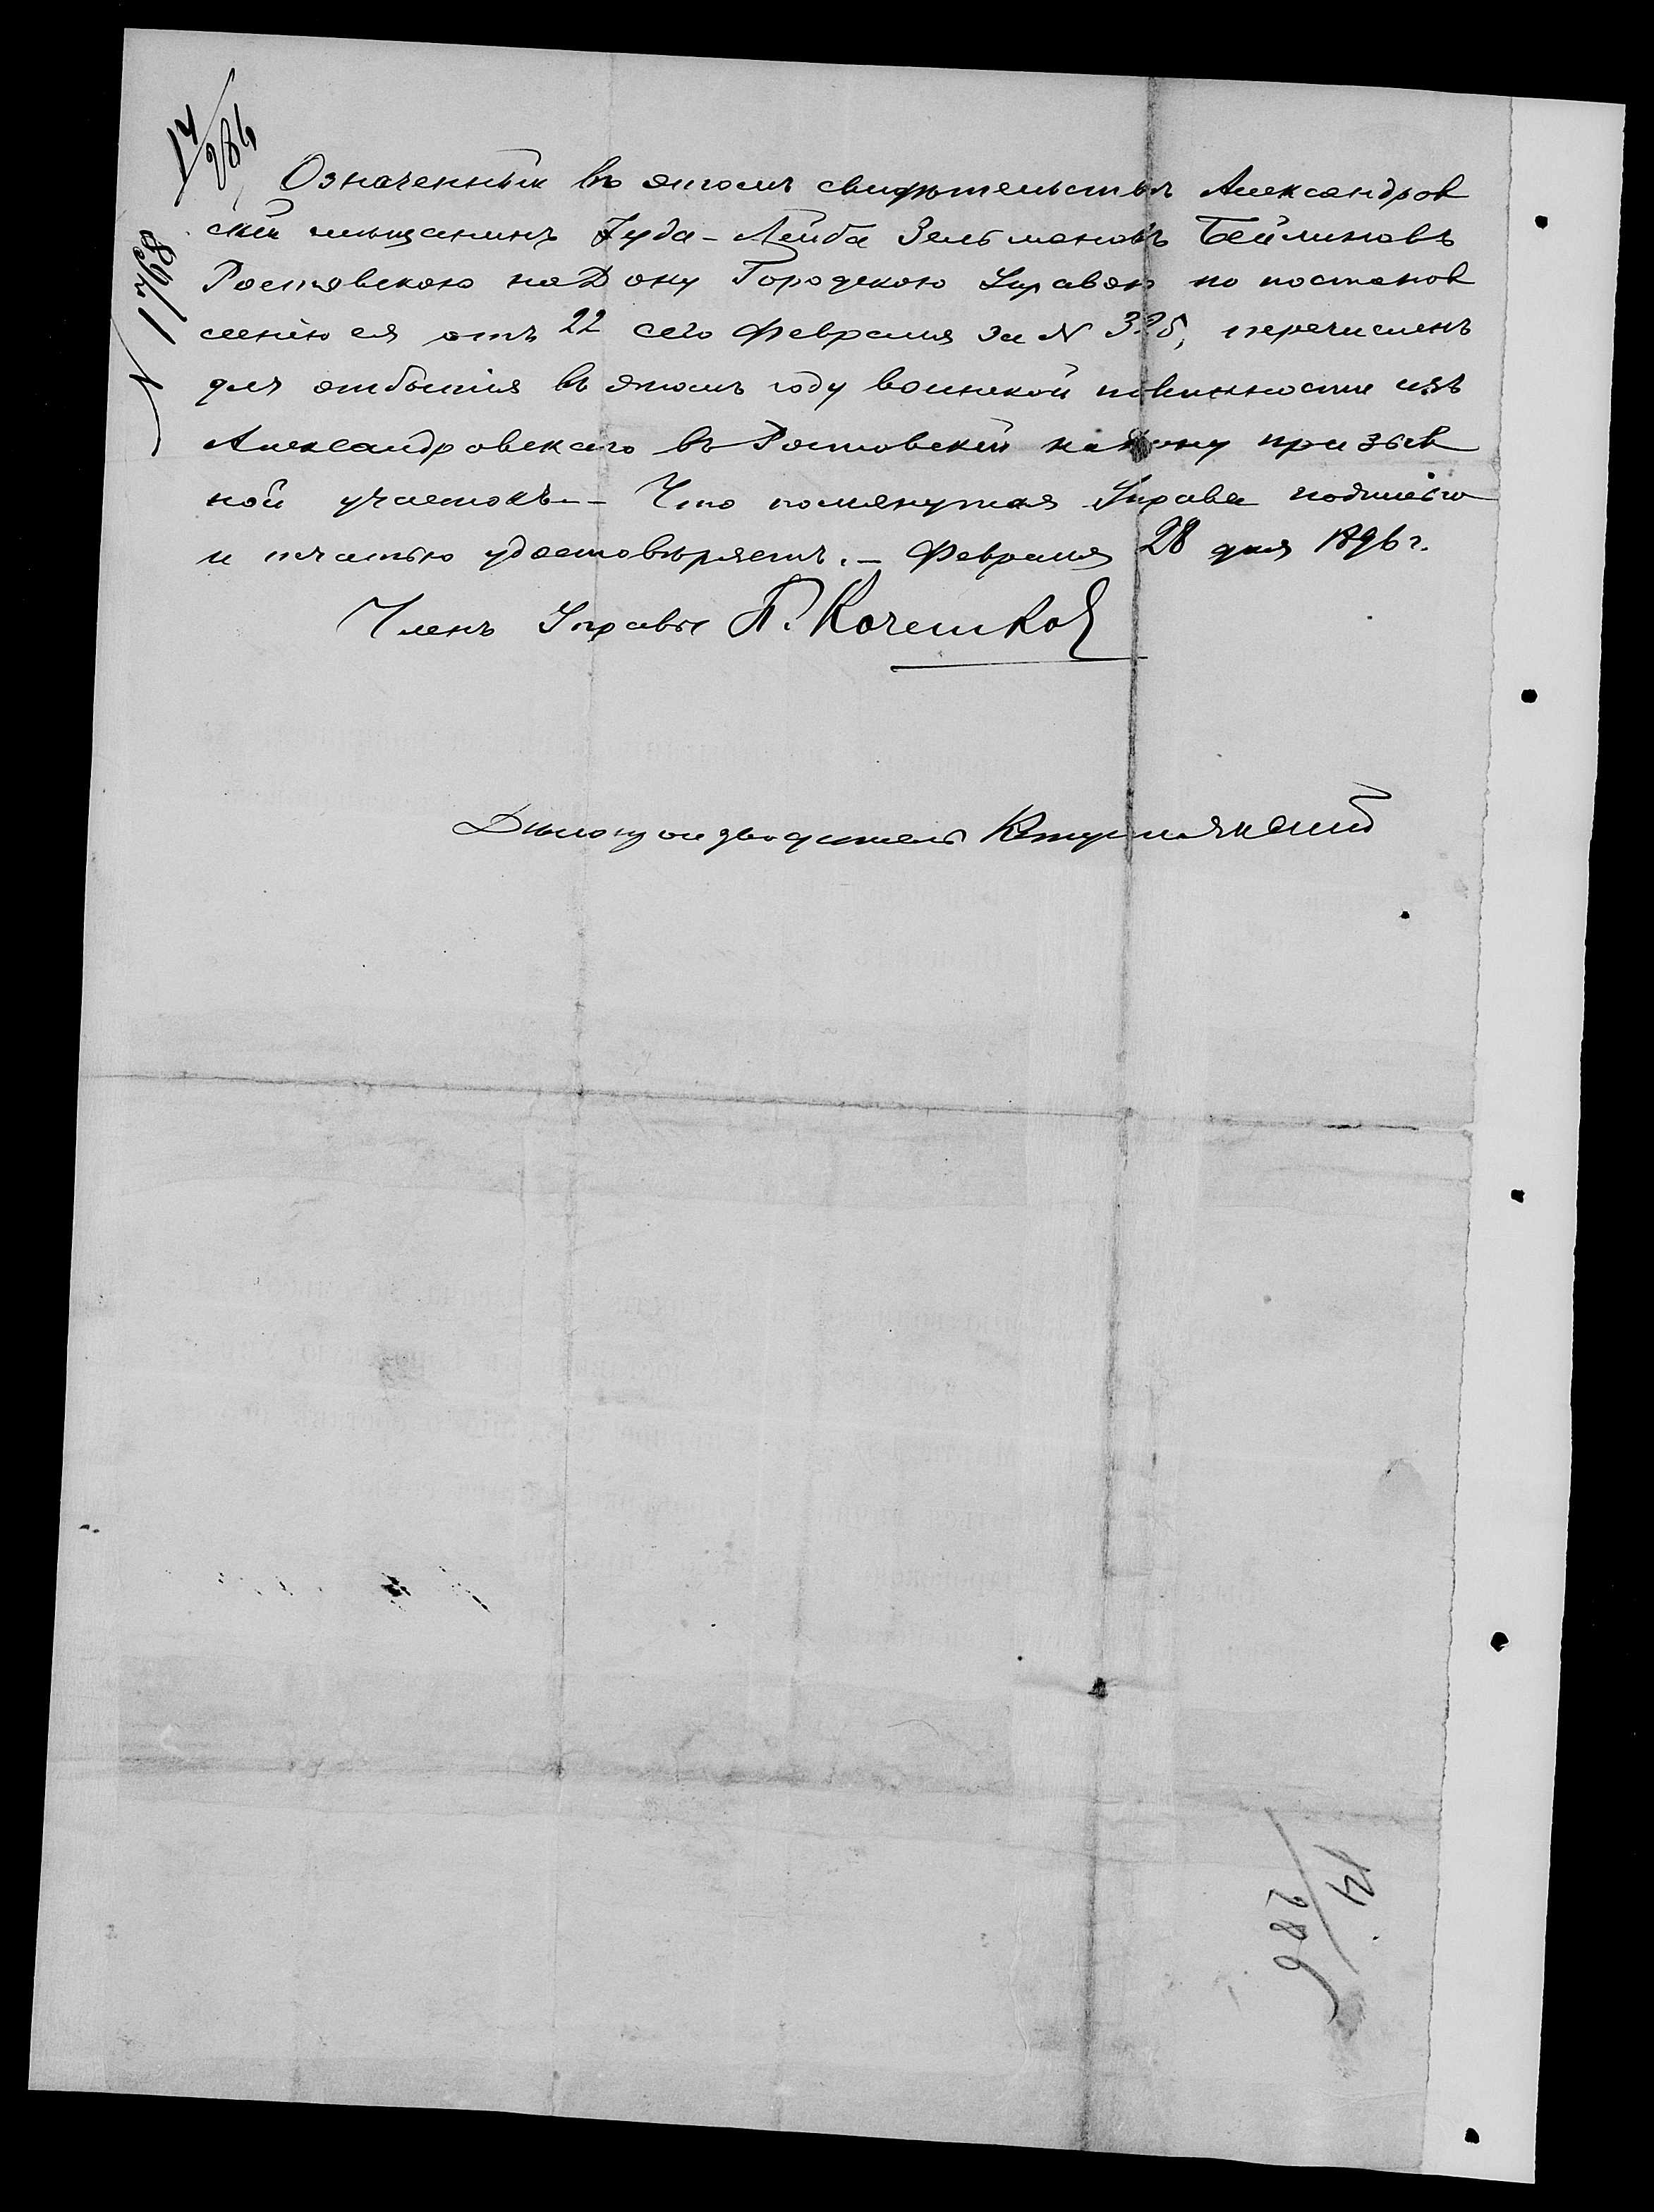 14/286
N 1768
Означенный въ этомъ свидѣтельствѣ Александров
скій мѣщанинъ Іуда-Лейба Зельмановъ Бейлиновъ
Ростовскою на Дону Городскою Управою по постанов
ленію ея отъ 22 сего Февраля за N 325, перечисленъ
для отбытія въ этомъ году воинской повинности изъ
Александровскаго въ Ростовскій на Дону призыв
ной участокъ. - Что помянутая Управа подписью
и печатью удостовѣряетъ. - Февраля 28 дня 1896 г.
Членъ Управы П. Кочешков
Дѣлопроизводитель
14/286